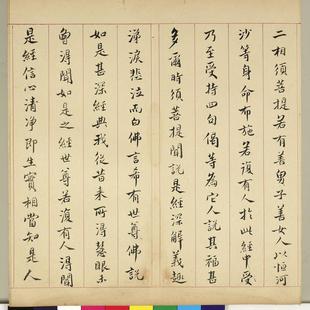 二相須菩提若有善男子善女人以恒河
沙等身命布施若復有人於此經中受
乃至受持四句偈等為它人說其福甚
多爾時須菩提聞說是經深解義趣
涕淚悲泣而白佛言希有世尊佛說
如是甚深經典我從昔來所得慧眼未
曾得聞如是之經世尊若復有人得聞
是經信心清淨即生實相當知是人